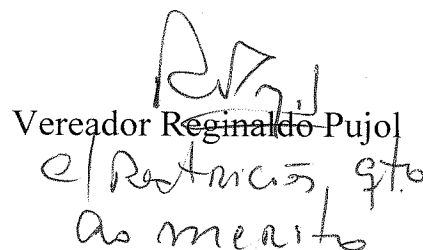 Vereador Reginaldo Pujol
c/ Restrição qto
ao merito